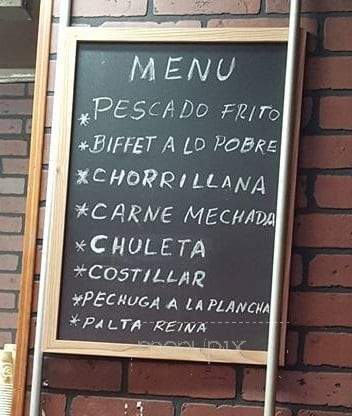 MENU
*PESCADO FRITO
*BIFFET A LO POBRE
*CHORRILLANA
*CARNE MECHADA
*CHULETA
*COSTILLAR
*PECHUGA A LA PLANCHA
*PALTA REINA
menupix